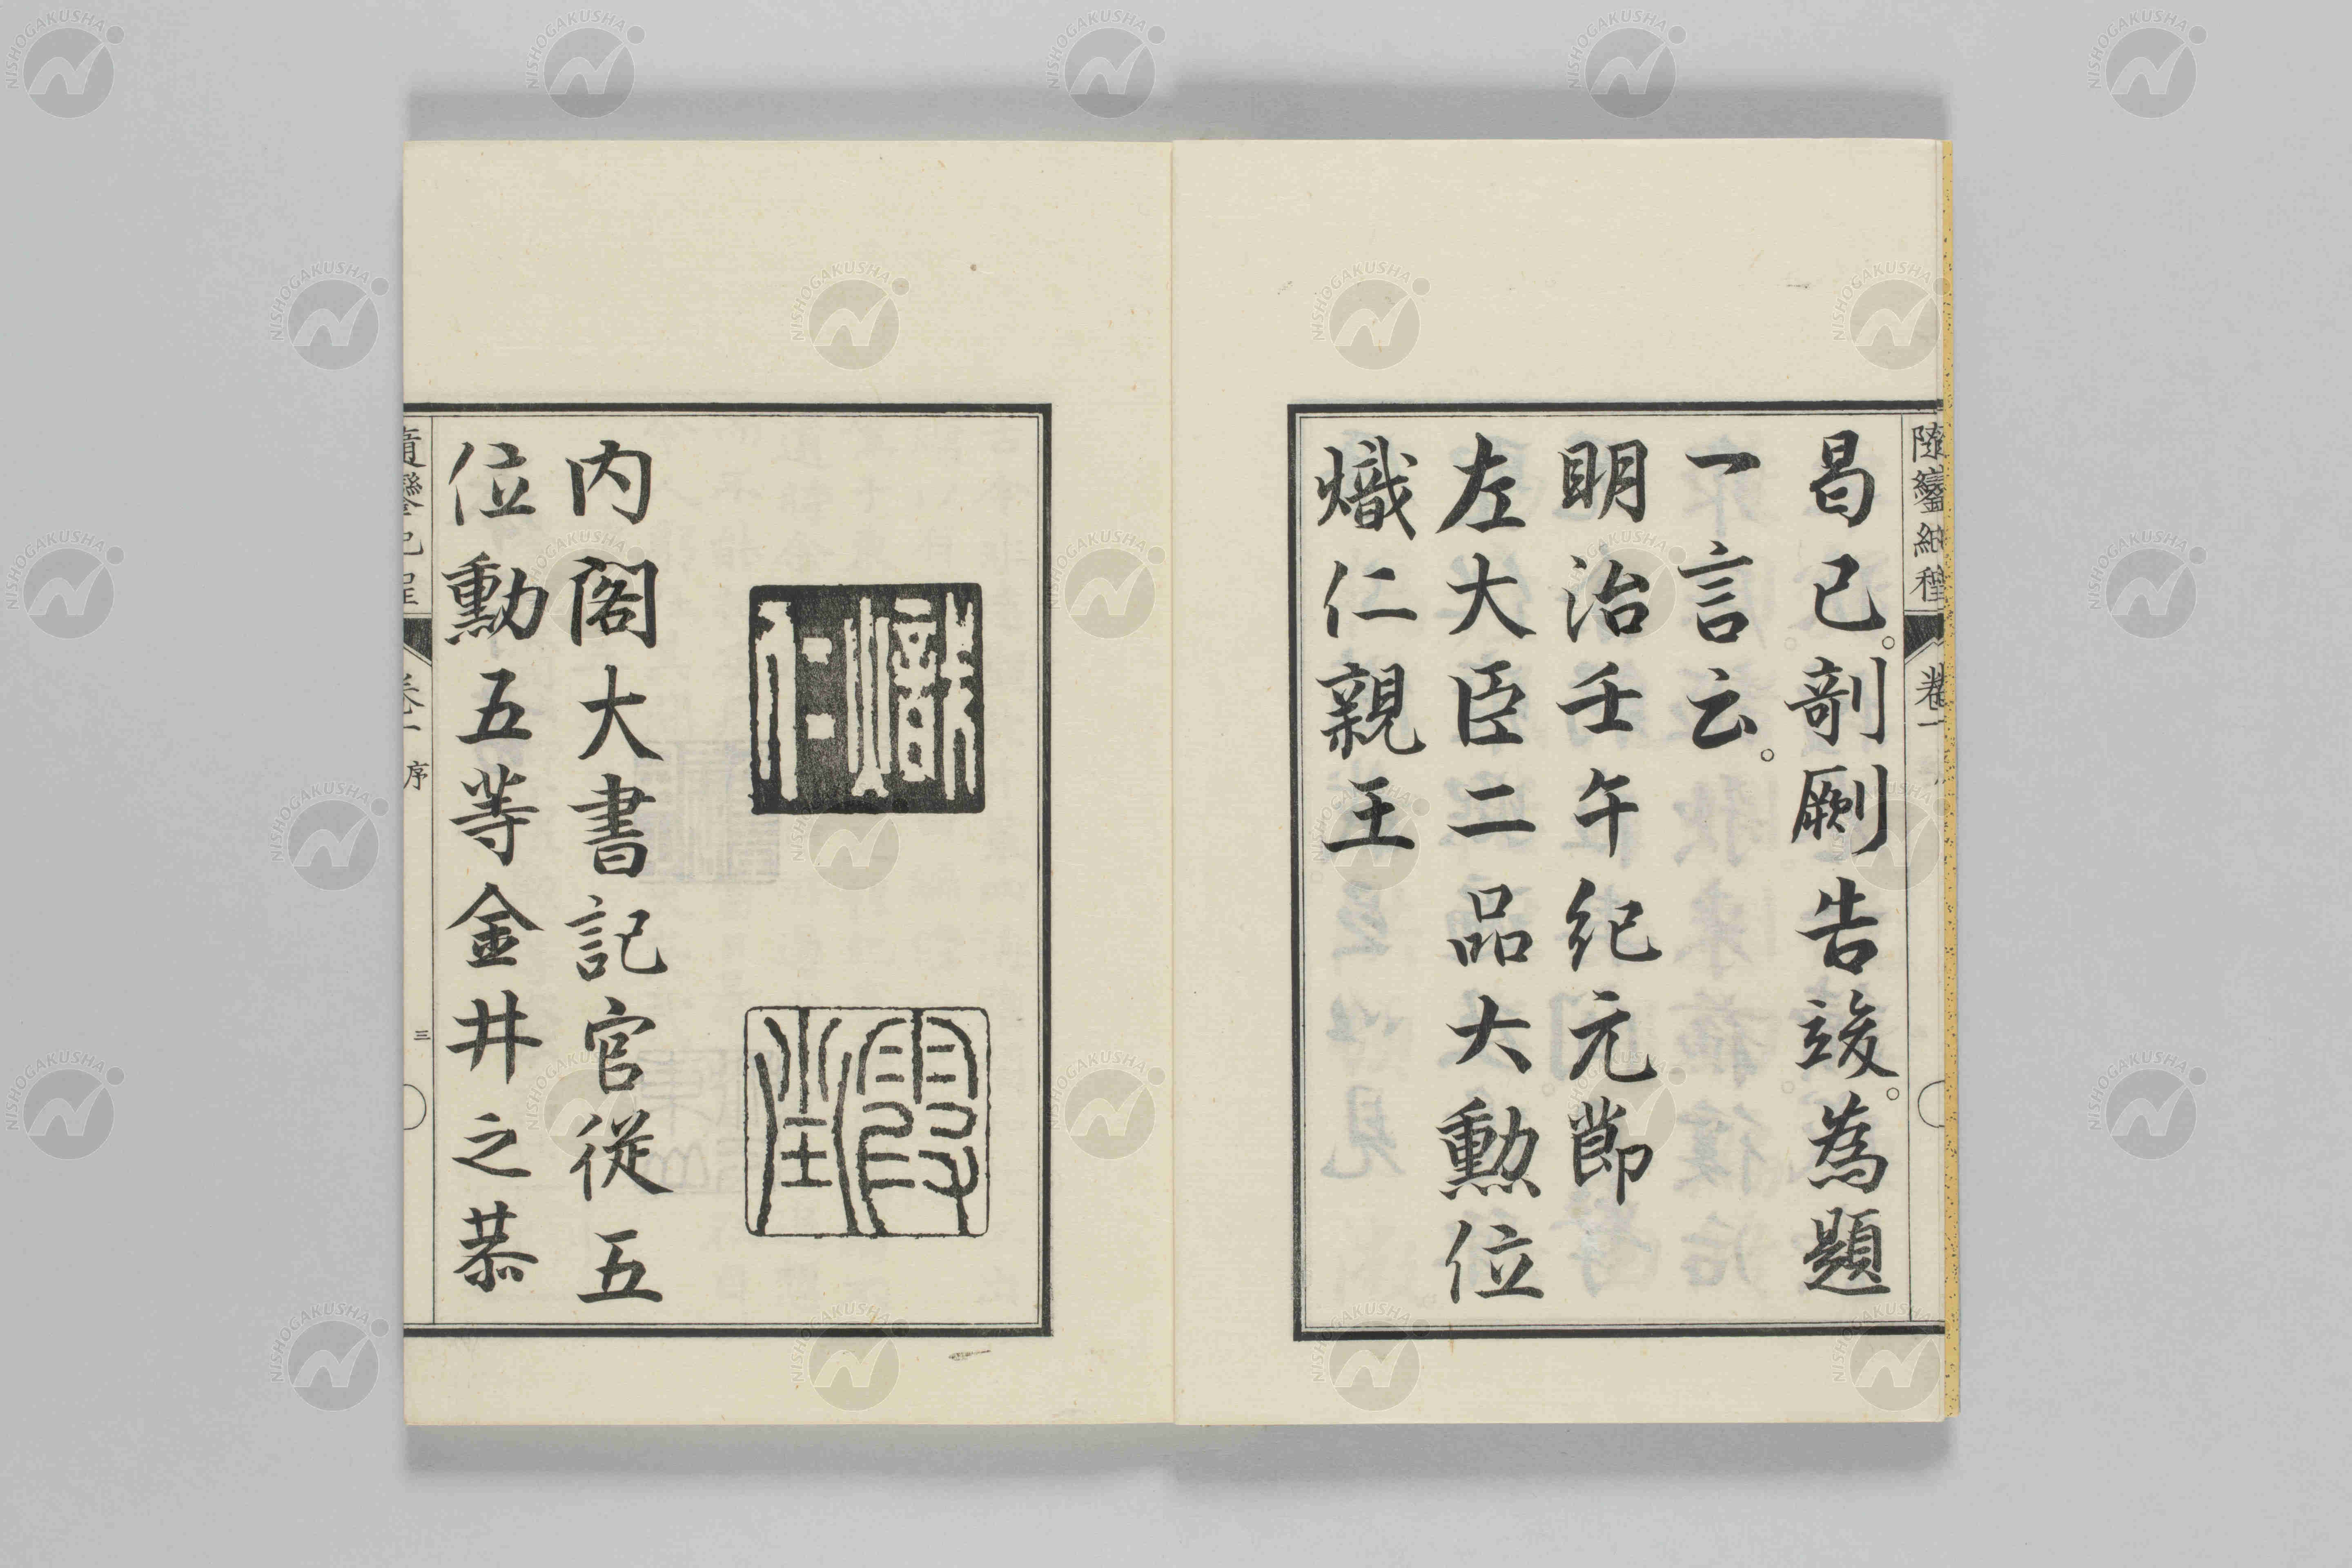 隨鑾紀程
卷一
曷已。剞劂告竣。為題
一言云。
明治壬午紀元節
左大臣二品大勳位
熾仁親王
熾仁
霞堂
内閣大書記官從五
位勳五等金井之恭
隨鑾紀程
卷一
序
三
NISHOGAKUSHA